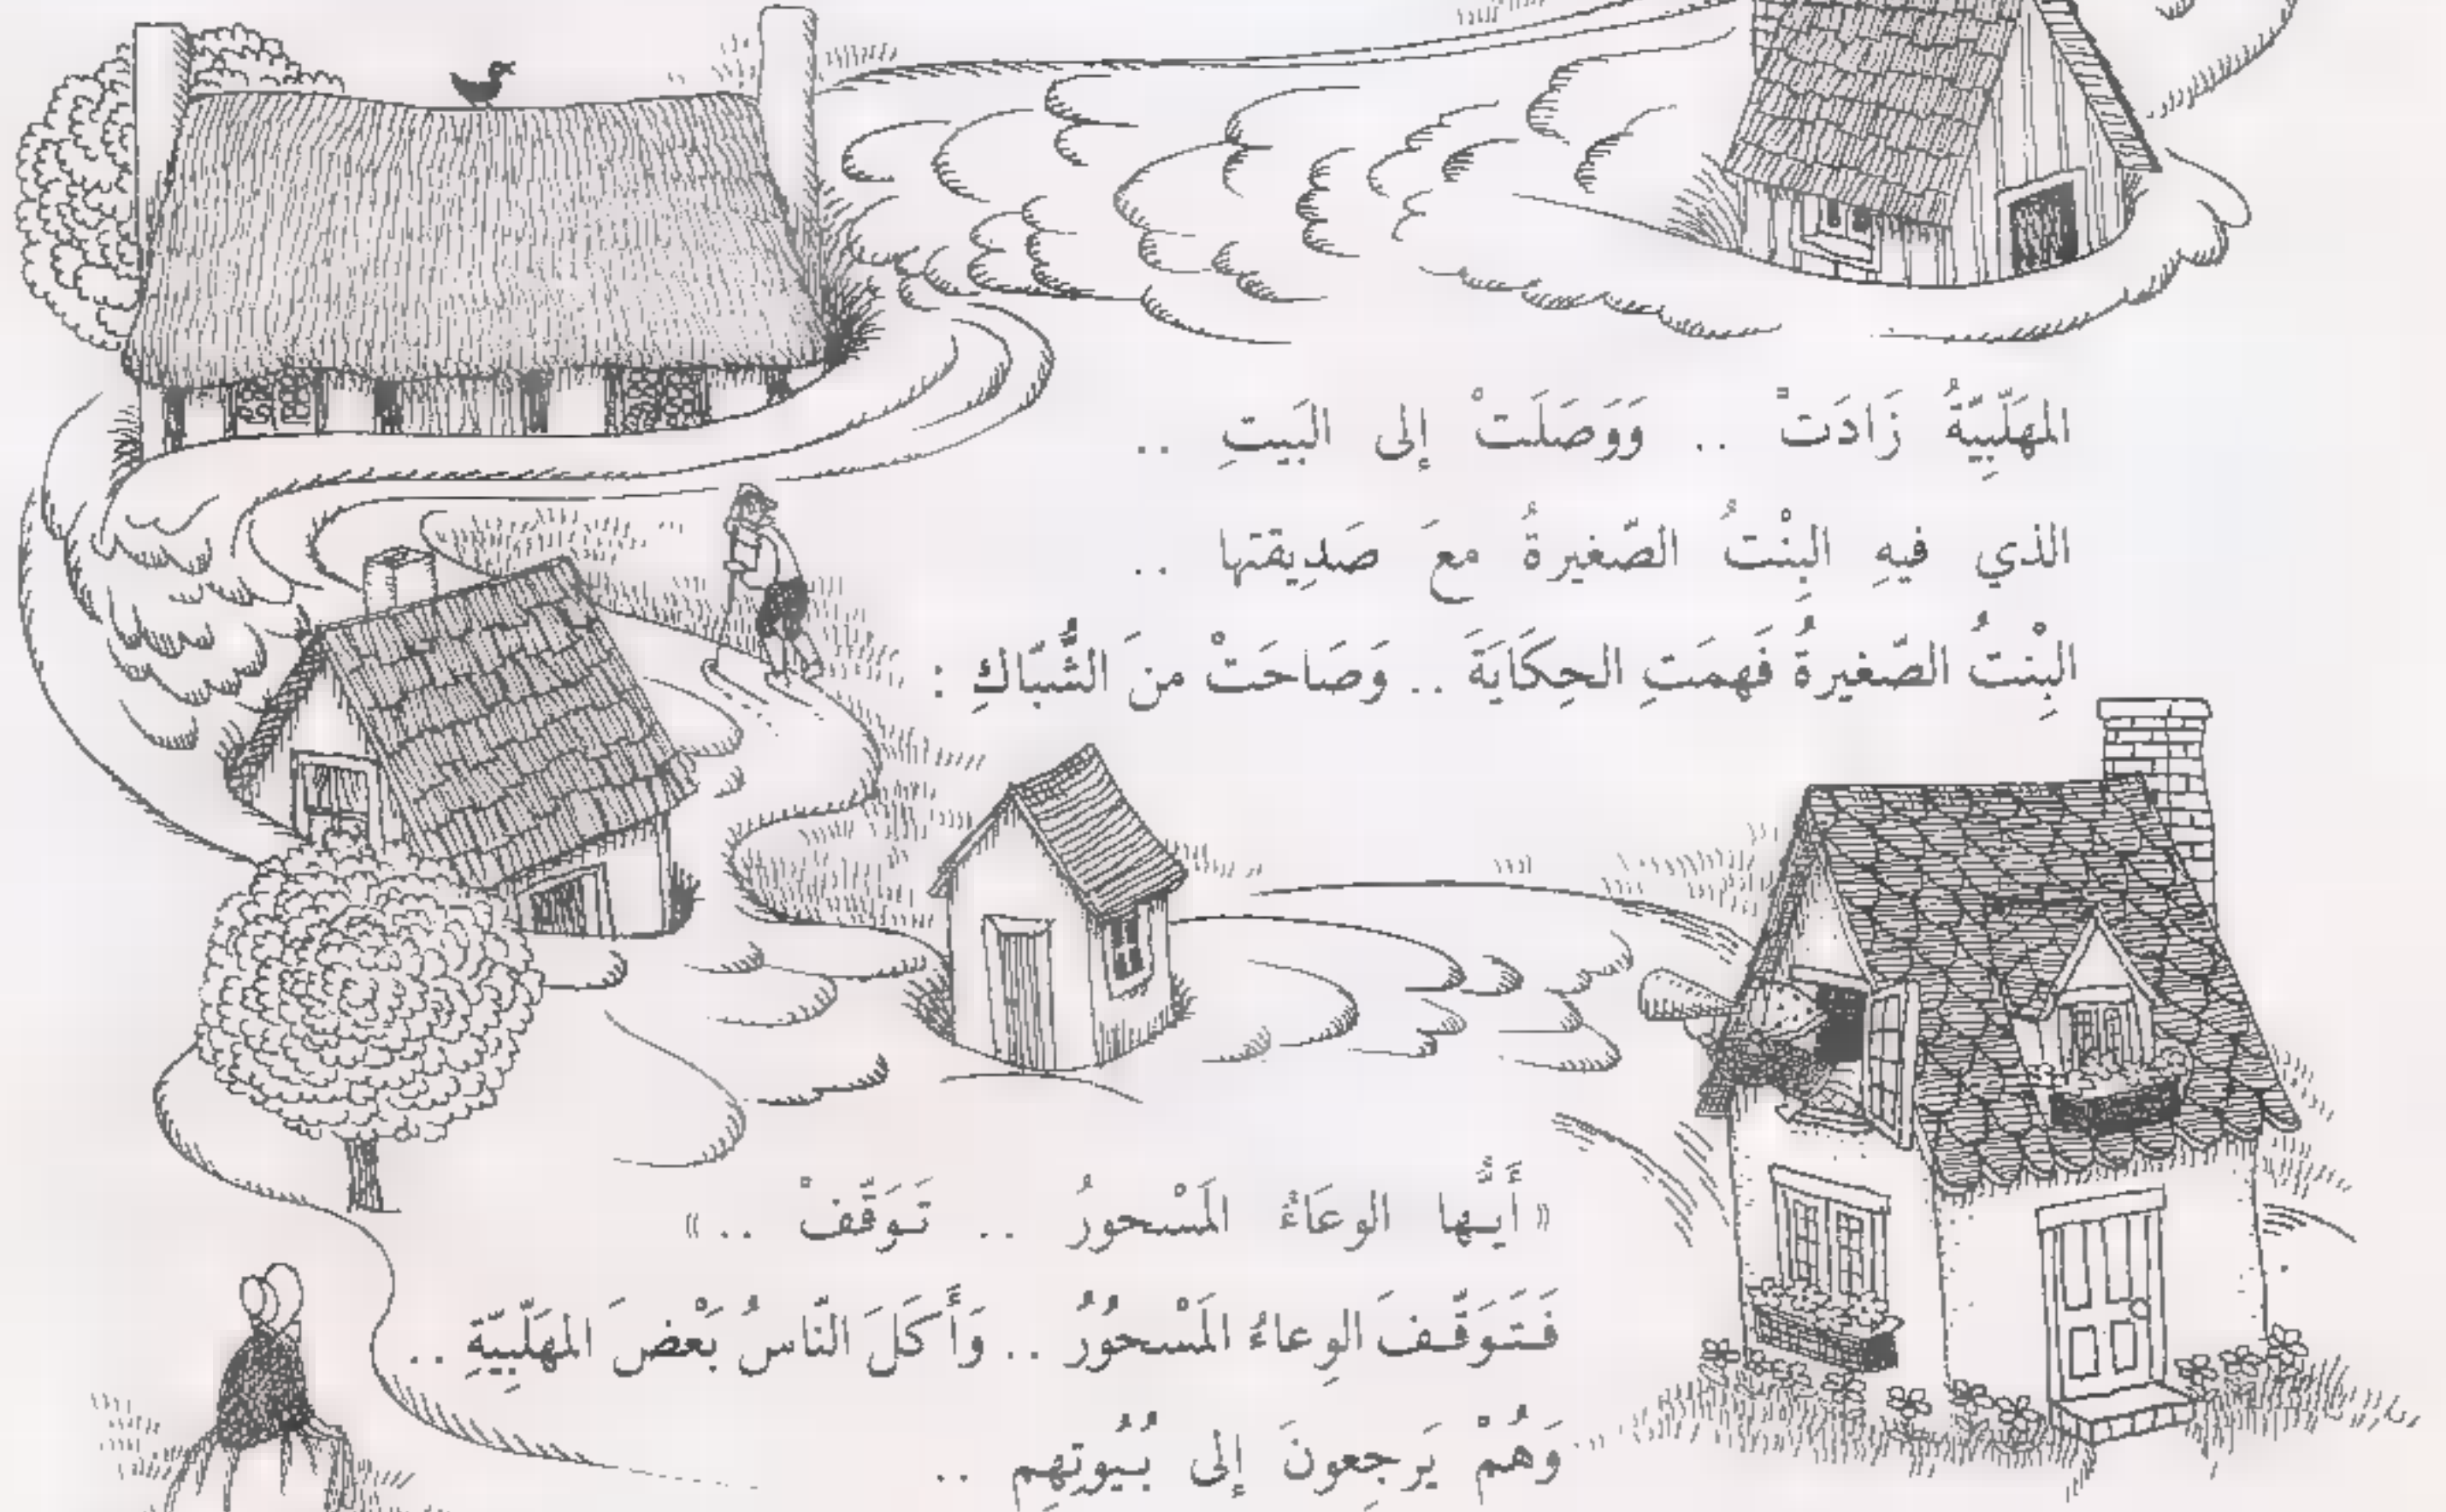 المهَلّبِيّةُ زَادَتْ .. وَوَصَلَتْ إلى البَيتِ ..
الذي فيهِ البِنْتُ الصّغيرةُ معَ صَدِيقتها ..
البِنْتُ الصّغيرةُ فَهِمَتِ الحِكَايَةَ .. وَصَاحَتْ منَ الشُّبّاكِ :
« أَيّـها الوعَاءُ المَسْحورُ .. تَـوَقّفْ .. »
فَـتَـوَقّـفَ الوِعاءُ المَسْحوُرُ .. وَأَكَلَ النّاسُ بَعْضَ المهَلّبِيّةِ ..
وَهُمْ يَرجِعونَ إلى بُـيُوتِهِم ..